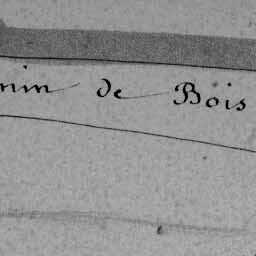 min de Bois